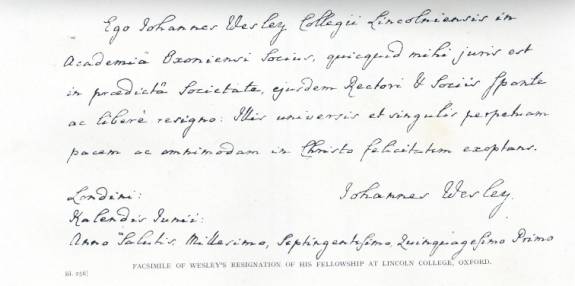 Ego Iohannes Wesley Collegii Lincolniensis in
Academiâ Oxoniensi Socius, quicquid mihi juris est
in prædictâ Societate, ejusdem Rectori & Sociis sponte
ac liberè resigno: Illis universis et singulis perpetuam
pacem ac omnimodam in Christo felicitatem exoptans.
Londini: Iohannes Wesley.
Kalendis Junii:
Anno Salutis, Millesimo, Septingentesimo, Quinquagesimo Primo
FACSIMILE OF WESLEY'S RESIGNATION OF HIS FELLOWSHIP AT LINCOLN COLLEGE, OXFORD.